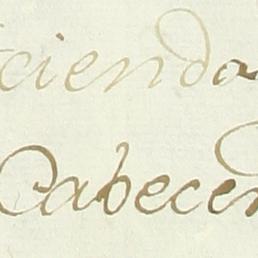 ciendo
Cabecer